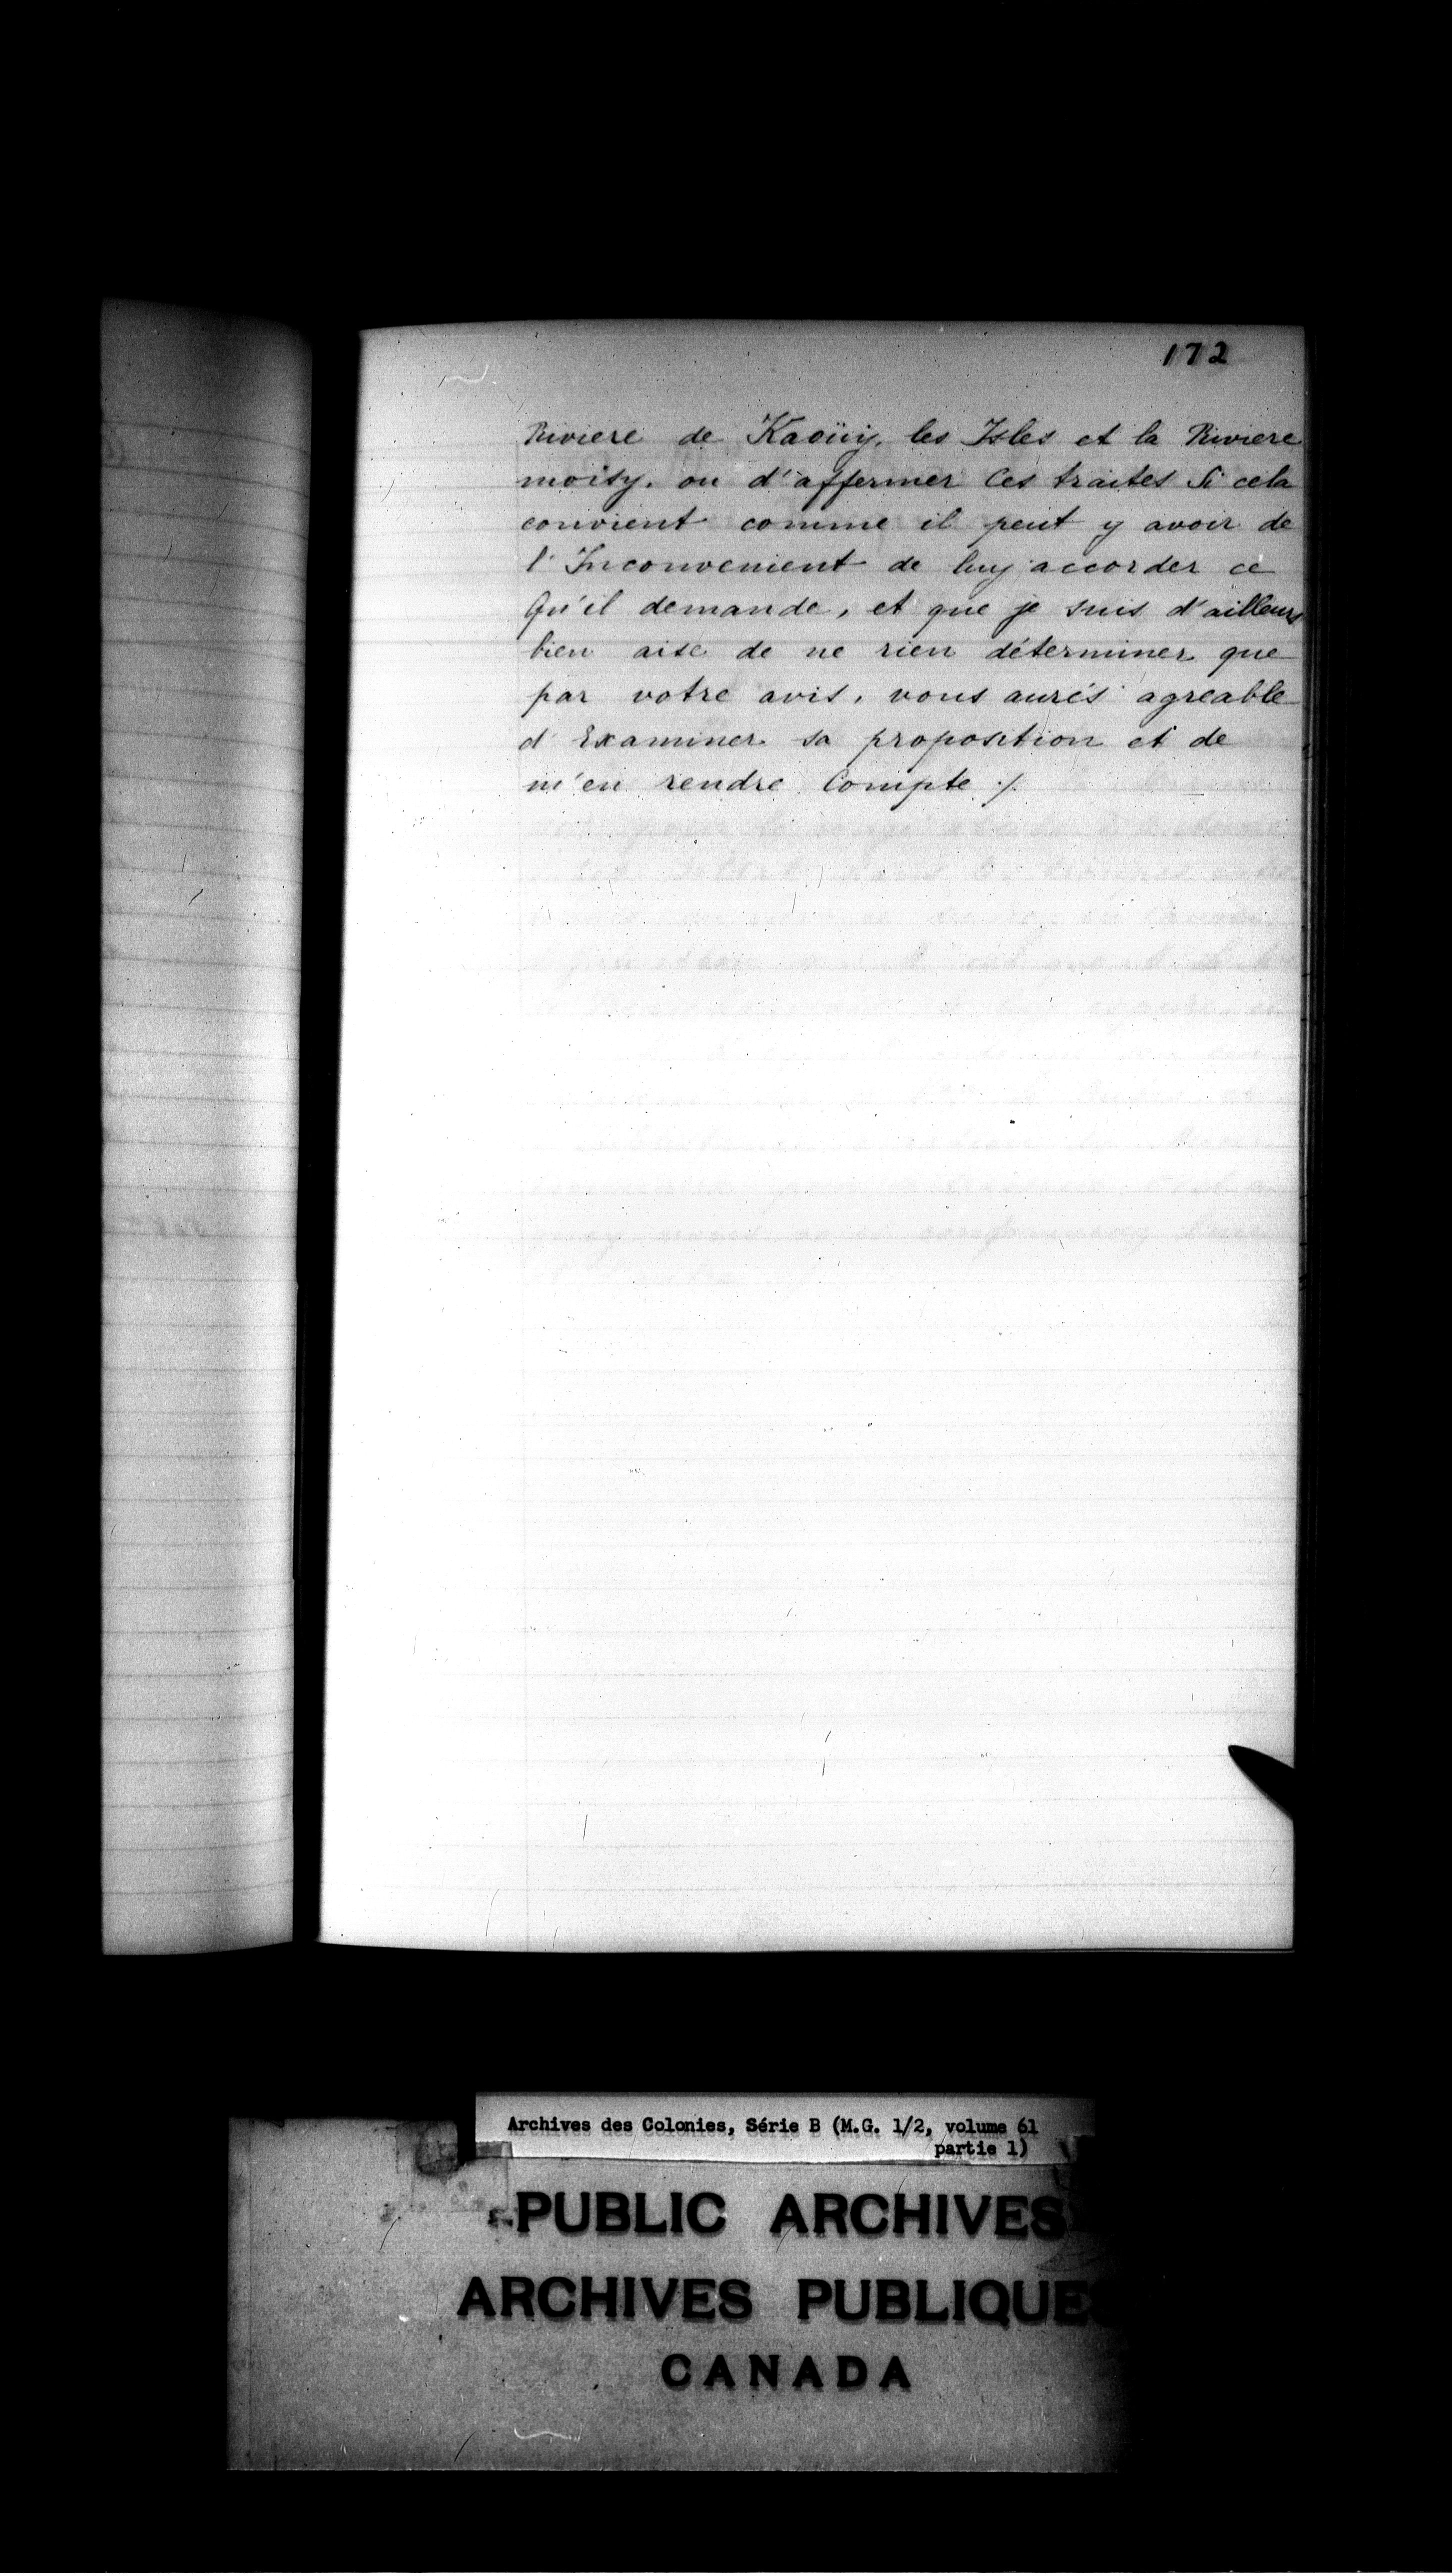 172
Riviere de Kaoüy, les Isles et la Riviere
moisy. ou d'affermer Ces traites Si cela
convient comme il peut y avoir de
l'Inconvenient de luy accorder ce
Qu'il demande, et que je suis d'ailleurs
bien aise de ne rien déterminer que
par votre avis, vous aurés agreable
d'Examiner sa proposition et de
m'en rendre Compte ./.
Archives des Colonies, Série B (M.G. 1/2, volume 61
partie 1)
PUBLIC ARCHIVES
ARCHIVES PUBLIQUES
CANADA